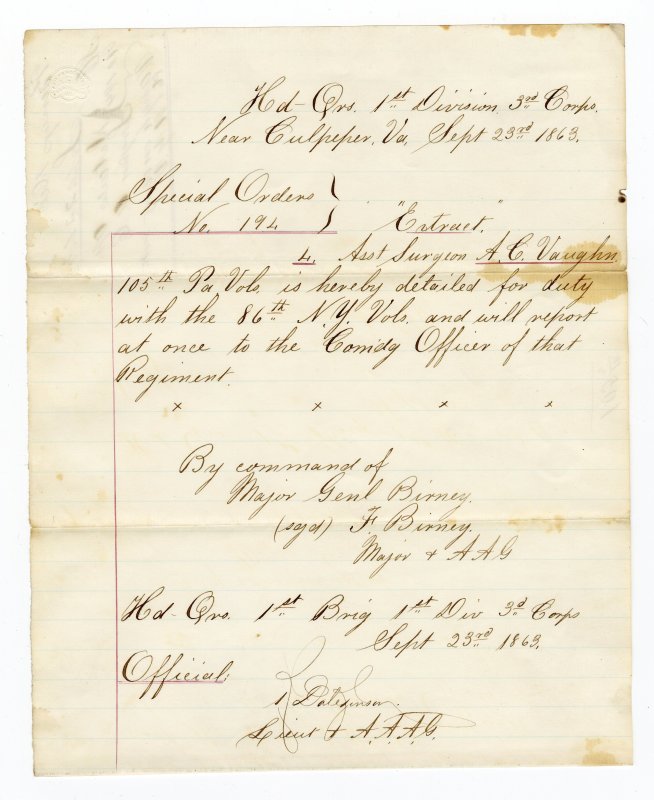 Hd-Qrs. 1st Division 3rd Corps.
Near Culpeper, Va, Sept 23rd 1863.
Special Orders }
No. 194 } "Extract."
4. Asst Surgeon A. C. Vaughn
105th Pa Vols. is hereby detailed for duty
with the 86th N.Y. Vols. and will report
at once to the Comdg Officer of that
Regiment.
x x x x
By command of
Major Genl Birney.
(sgd) F Birney
Major & AAG
Hd-Qrs. 1st Brig 1st Div 3d Corps
Sept 23rd 1863.
Official:
Lieut & A.A.A.G.